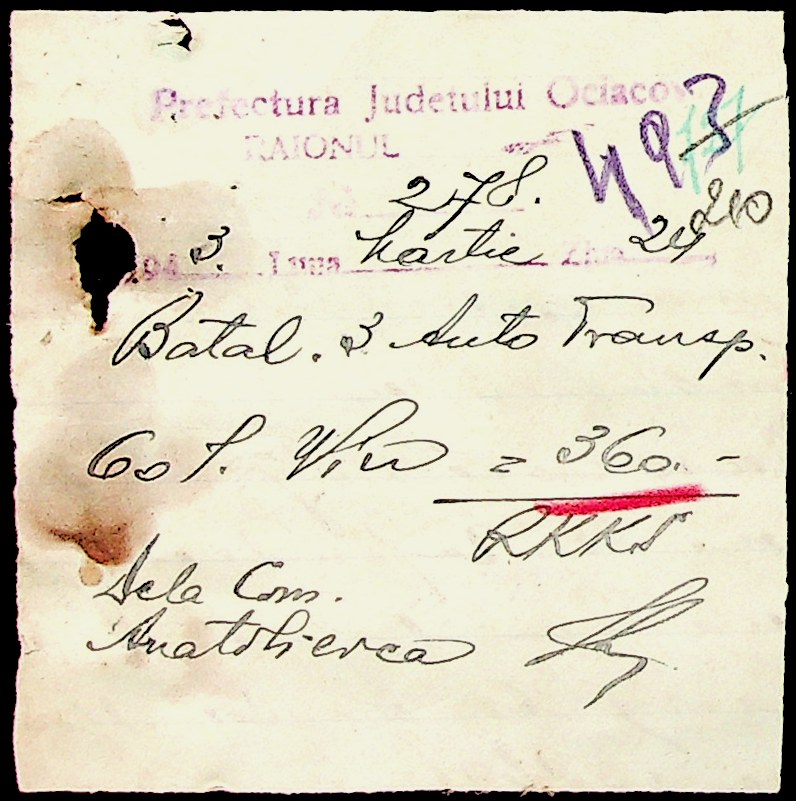 Prefectura Judetului Ociacov
RAIONUL
493
278.
210
194 3. Luna Martie Ziua 24
Batal. 3 Auto Transp.
60 l. Vin = 360. -
RKKS
Dela Com.
Anatolievca